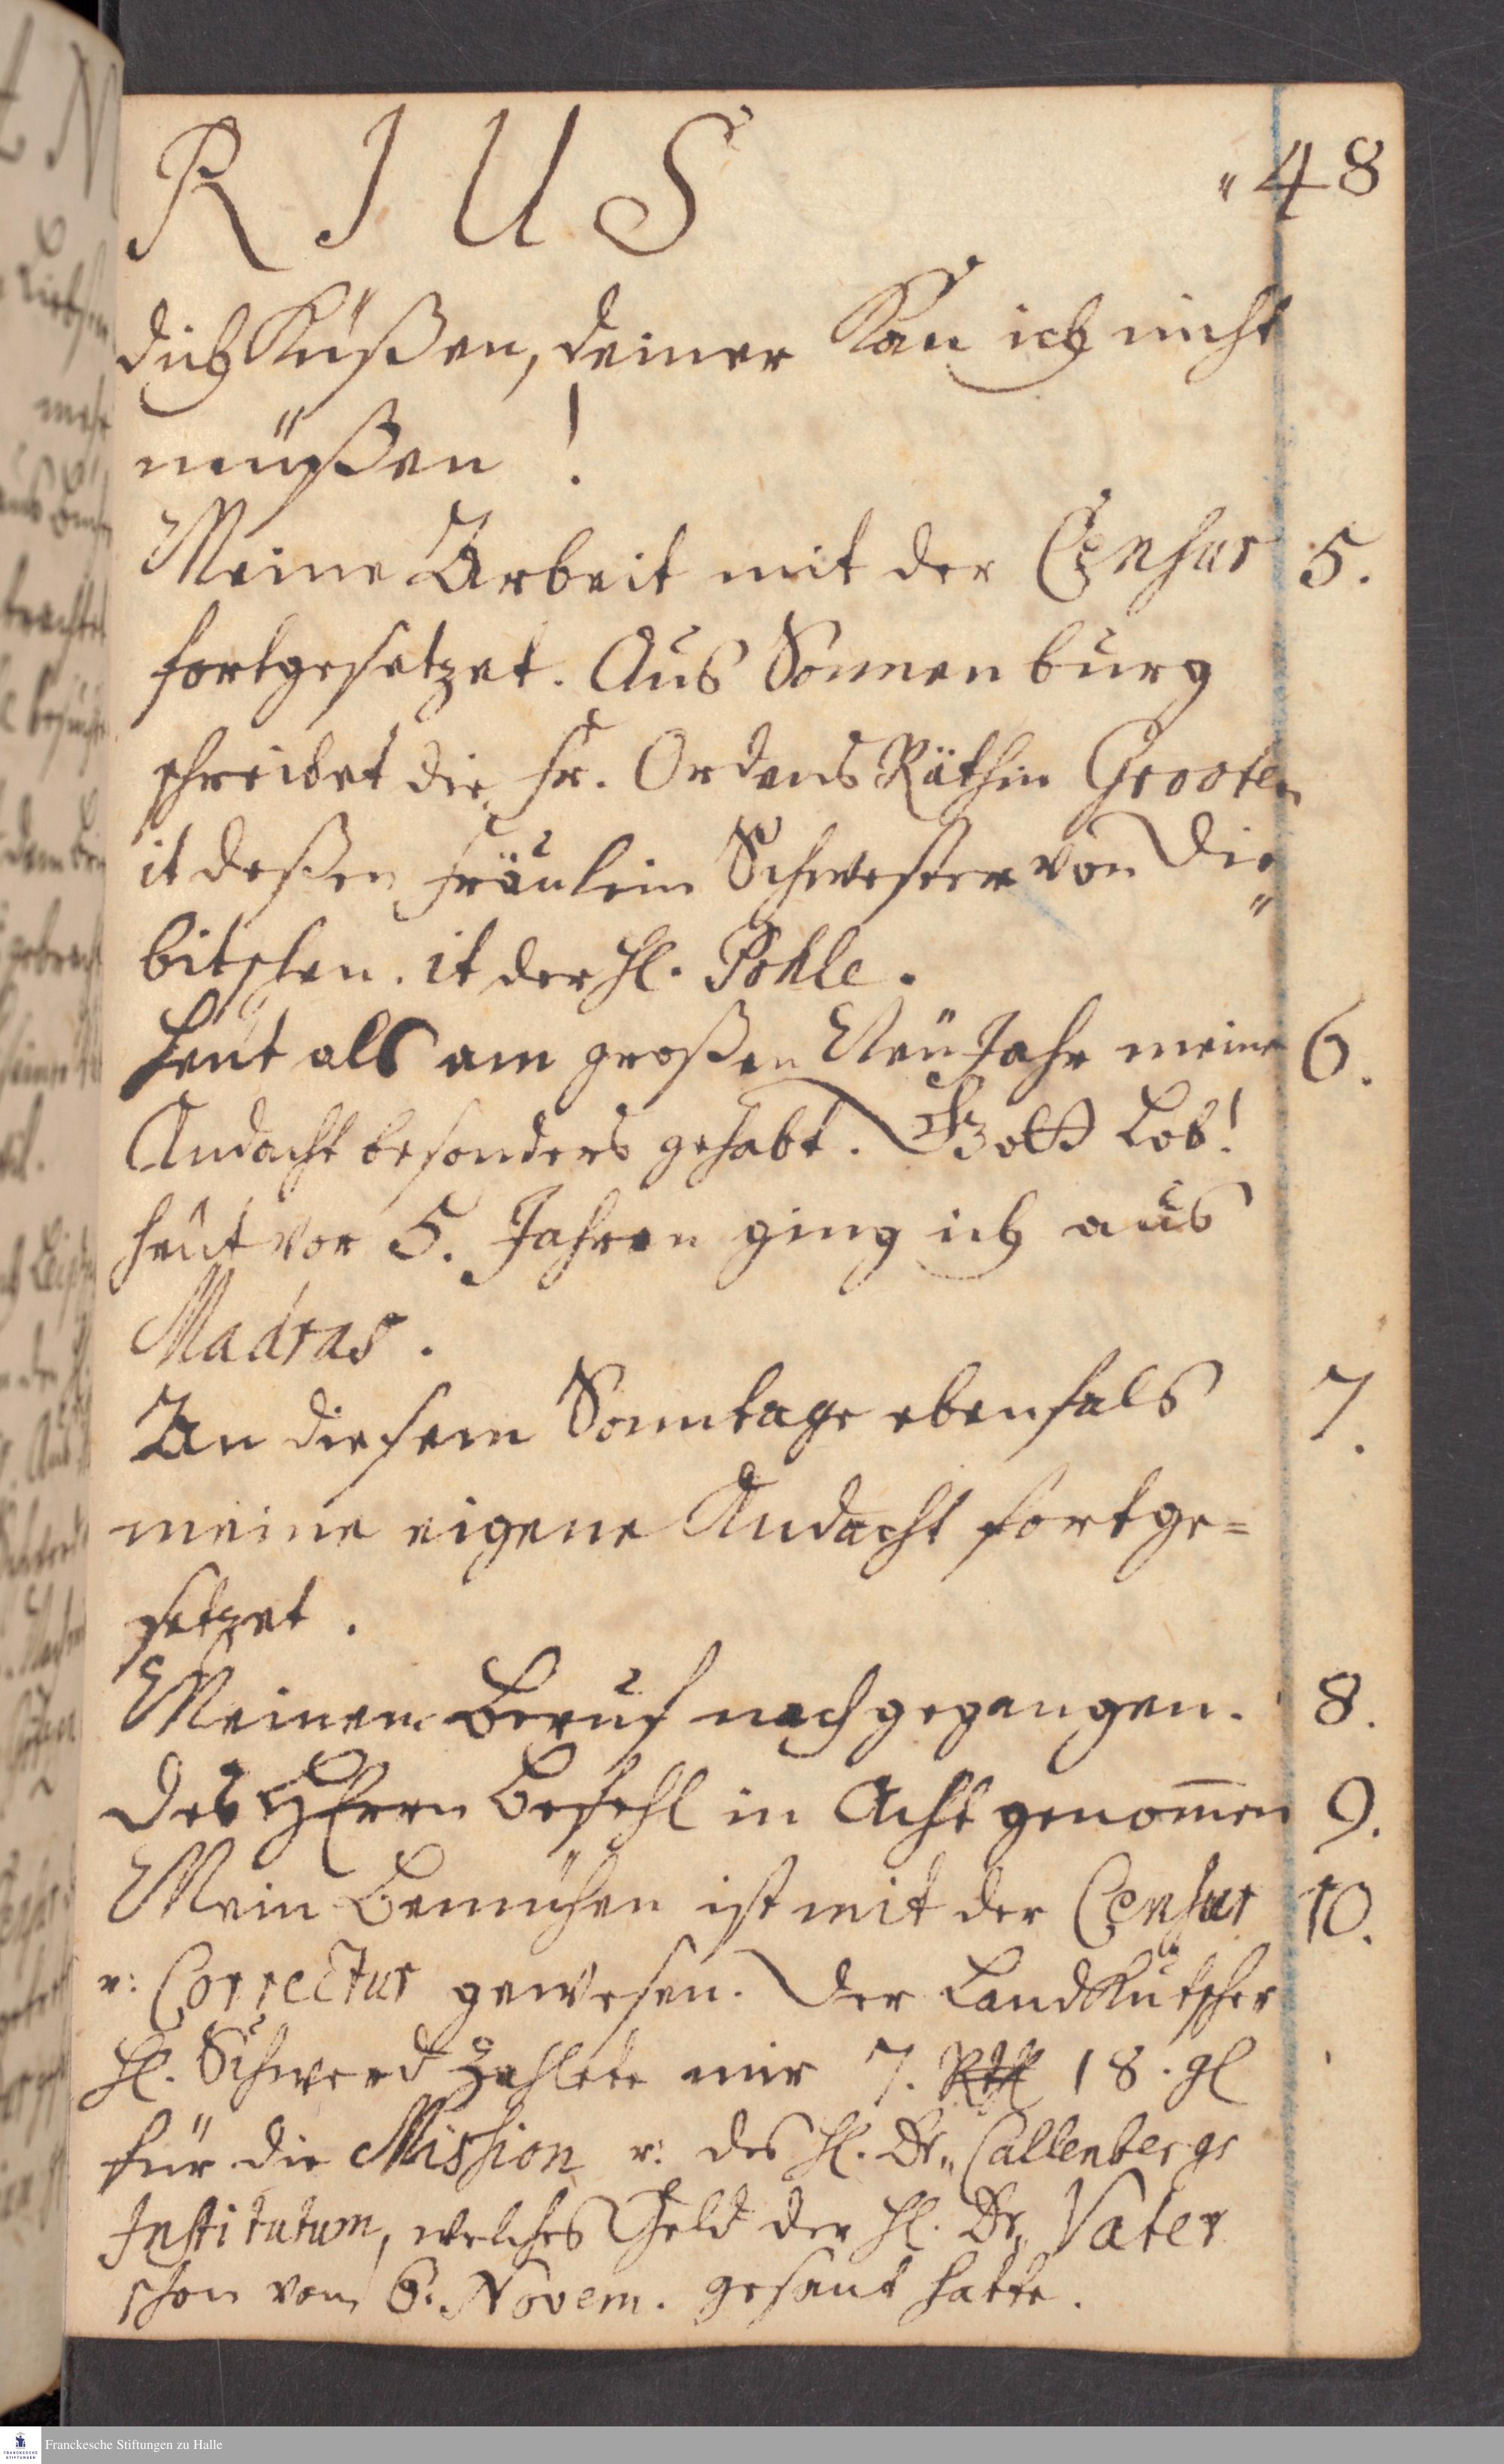 R I U S "48
dich Küßen, deiner Kan ich nicht
müßen !
Meine Arbeit mit der Censur 5.
fortgesetzet. Aus Sonnenburg
schreibet die Fr. Ordens Räthin Grooten
it deßen Fräulein Schwester von Die"
bitschen. it der H. Pohle.
Heut als am großen Neü Jahr meine 6.
Andacht besonders gehabt. Gott Lob!
heut vor 5. Jahren ging ich aus
Madras.
An diesem Sonntage ebenfals 7.
meine eigene Andacht fortge=
setzet.
Meinem Beruf nachgegangen. 8.
Des HErrn Befehl in Acht genom̅en 9.
Mein Bemühen ist mit der Censur 10.
u: Correctur gewesen. Der LandKutscher
H. Schwerd zahlete mir 7. Rthl 18. gl
für die Mission u: des H. Dr. Callenbergs
Institutum, welches Geld der H. Dr. Vater
schon vom 6. Novem. gesant hatte.
Franckesche Stiftungen zu Halle